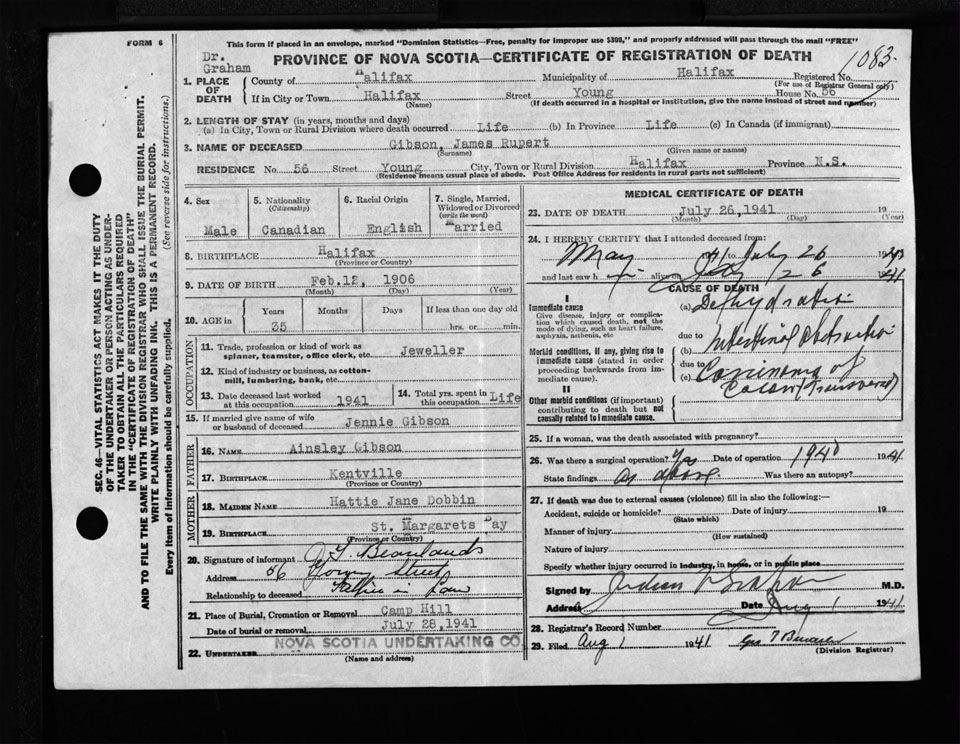 FORM 6
This form if placed in an envelope, marked "Dominion Statistics—Free, penalty for improper use $300," and properly addressed will pass through the mail "FREE"
Dr. Graham
PROVINCE OF NOVA SCOTIA—CERTIFICATE OF REGISTRATION OF DEATH
1083
1. PLACE OF DEATH
County of Halifax Municipality of Halifax Registered No.
(For use of Registrar General only)
If in City or Town Halifax Street Young House No. 56
(Name) (If death occurred in a hospital or institution, give the name instead of street and number)
2. LENGTH OF STAY (in years, months and days)
(a) In City, Town or Rural Division where death occurred Life (b) In Province Life (c) In Canada (if immigrant)
3. NAME OF DECEASED Gibson, James Rupert
(Surname) (Given name or names)
RESIDENCE No. 56 Street Young City, Town or Rural Division Halifax Province N.S.
(Residence means usual place of abode. Post Office Address for residents in rural parts not sufficient)
4. Sex Male
5. Nationality (Citizenship) Canadian
6. Racial Origin English
7. Single, Married, Widowed or Divorced (write the word) Married
8. BIRTHPLACE Halifax
(Province or Country)
9. DATE OF BIRTH Feb.12, 1906
(Month) (Day) (Year)
10. AGE in Years Months Days If less than one day old
35 hrs. or min.
OCCUPATION
11. Trade, profession or kind of work as spinner, teamster, office clerk, etc. Jeweller
12. Kind of industry or business, as cotton-mill, lumbering, bank, etc.
13. Date deceased last worked at this occupation 1941
14. Total yrs. spent in this occupation Life
15. If married give name of wife or husband of deceased Jennie Gibson
FATHER
16. NAME Ainsley Gibson
17. BIRTHPLACE Kentville
(Province or Country)
MOTHER
18. MAIDEN NAME Hattie Jane Dobbin
19. BIRTHPLACE St. Margarets Bay
(Province or Country)
20. Signature of informant
Address 56 Young Street
Relationship to deceased Father in Law
21. Place of Burial, Cremation or Removal Camp Hill
Date of burial or removal July 28,1941
22. UNDERTAKER NOVA SCOTIA UNDERTAKING CO.
(Name and address)
MEDICAL CERTIFICATE OF DEATH
23. DATE OF DEATH July 26,1941 19
(Month) (Day) (Year)
24. I HEREBY CERTIFY that I attended deceased from:
May to July 26 1941
and last saw him alive on July 26 1941
CAUSE OF DEATH
I
Immediate cause
Give disease, injury or complication which caused death, not the mode of dying, such as heart failure, asphyxia, asthenia, etc
(a) Dehydration
due to
Morbid conditions, if any, giving rise to immediate cause (stated in order proceeding backwards from immediate cause).
(b) Intestinal obstruction
due to
(c) Carcinoma of Colon (Transverse)
II
Other morbid conditions (if important) contributing to death but not causally related to immediate cause.
25. If a woman, was the death associated with pregnancy?
26. Was there a surgical operation? Yes Date of operation 1940 1941
State findings as above Was there an autopsy?
27. If death was due to external causes (violence) fill in also the following:—
Accident, suicide or homicide? Date of injury 19
(State which)
Manner of injury
(How sustained)
Nature of injury
Specify whether injury occurred in industry, in home, or in public place
Signed by Judson V Graham M.D.
Address Date Aug 1 1941
28. Registrar's Record Number
29. Filed Aug 1 1941
(Division Registrar)
SEC. 46—VITAL STATISTICS ACT MAKES IT THE DUTY
OF THE UNDERTAKER OR PERSON ACTING AS UNDER-
TAKER TO OBTAIN ALL THE PARTICULARS REQUIRED
IN THE "CERTIFICATE OF REGISTRATION OF DEATH"
AND TO FILE THE SAME WITH THE DIVISION REGISTRAR WHO SHALL ISSUE THE BURIAL PERMIT.
WRITE PLAINLY WITH UNFADING INK. THIS IS A PERMANENT RECORD.
Every item of information should be carefully supplied. (See reverse side for instructions.)